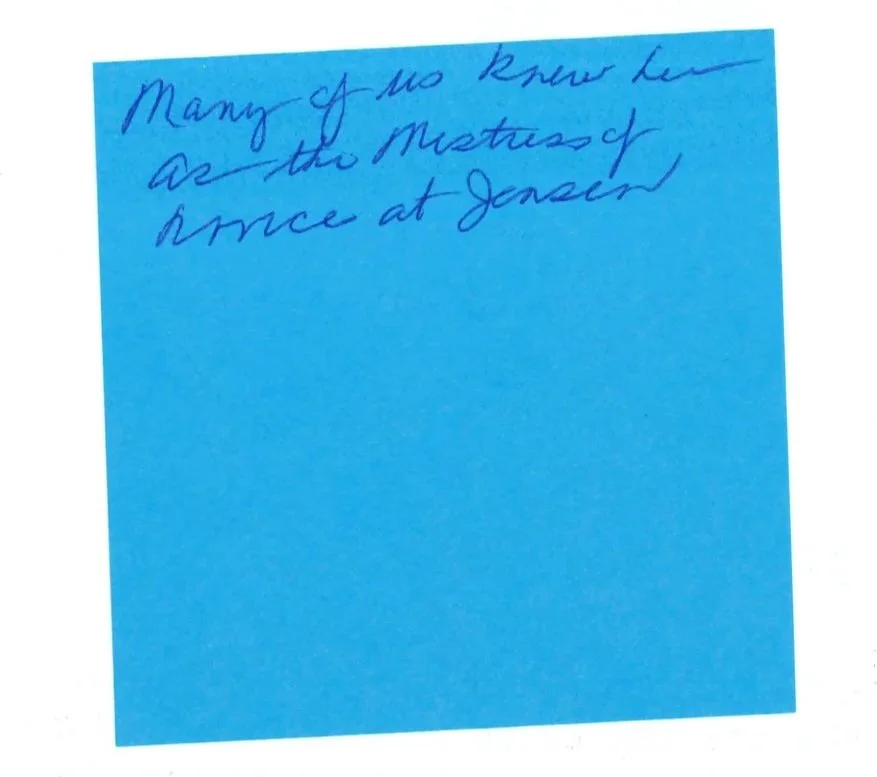 Many of us knew her
as the Mistress of
at Jensen